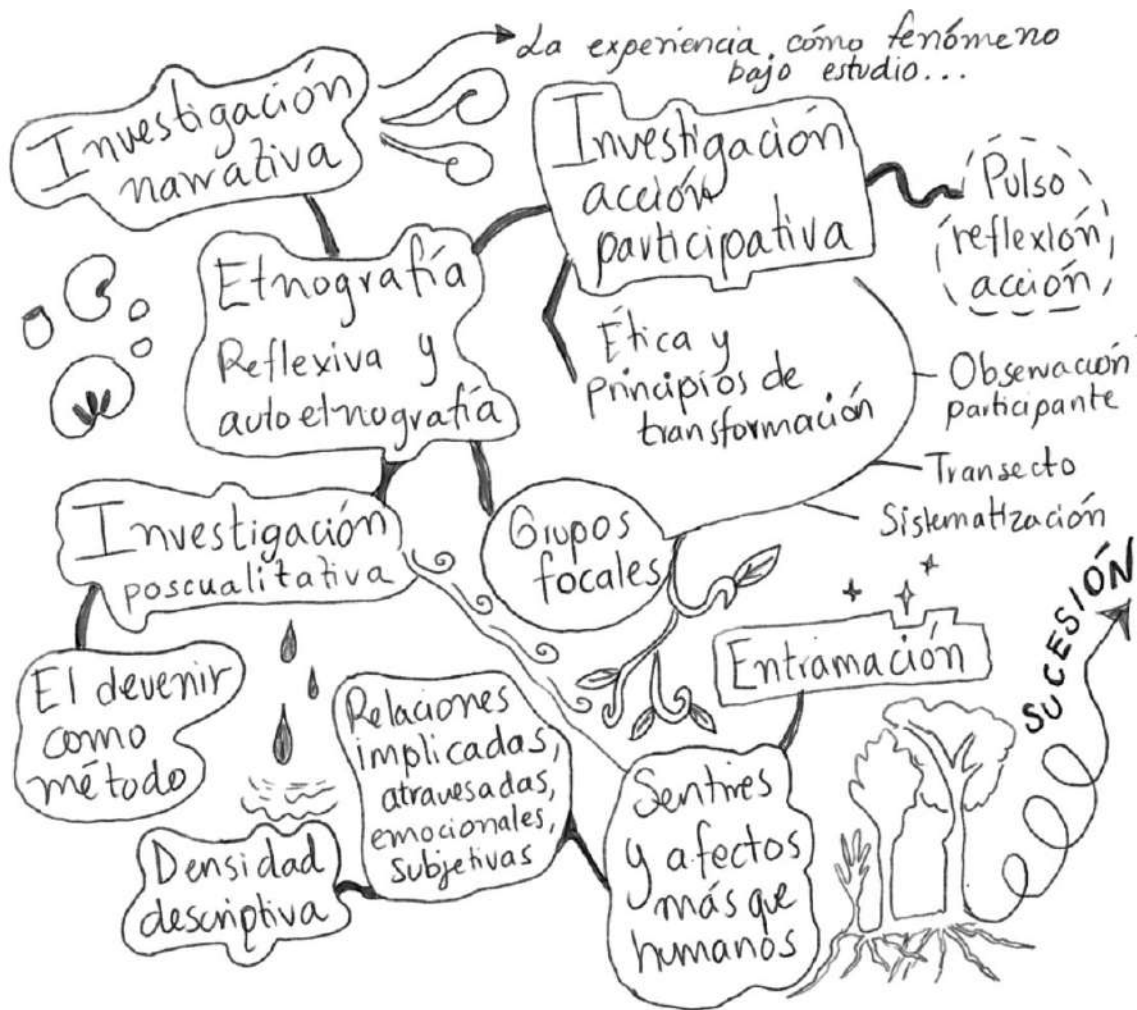 La experiencia, cómo fenómeno
bajo estudio...
Investigación
narrativa
Investigación
acción
participativa
Pulso
reflexión
acción
Etnografía
Reflexiva y
autoetnografía
Ética y
principios de
transformación
Observación
participante
Transecto
Sistematización
Investigación
poscualitativa
Grupos
focales
SUCESIÓN
Entramación
El devenir
como
método
Relaciones
implicadas,
atravesadas,
emocionales,
subjetivas
Sentires
y afectos
más que
humanos
Densidad
descriptiva